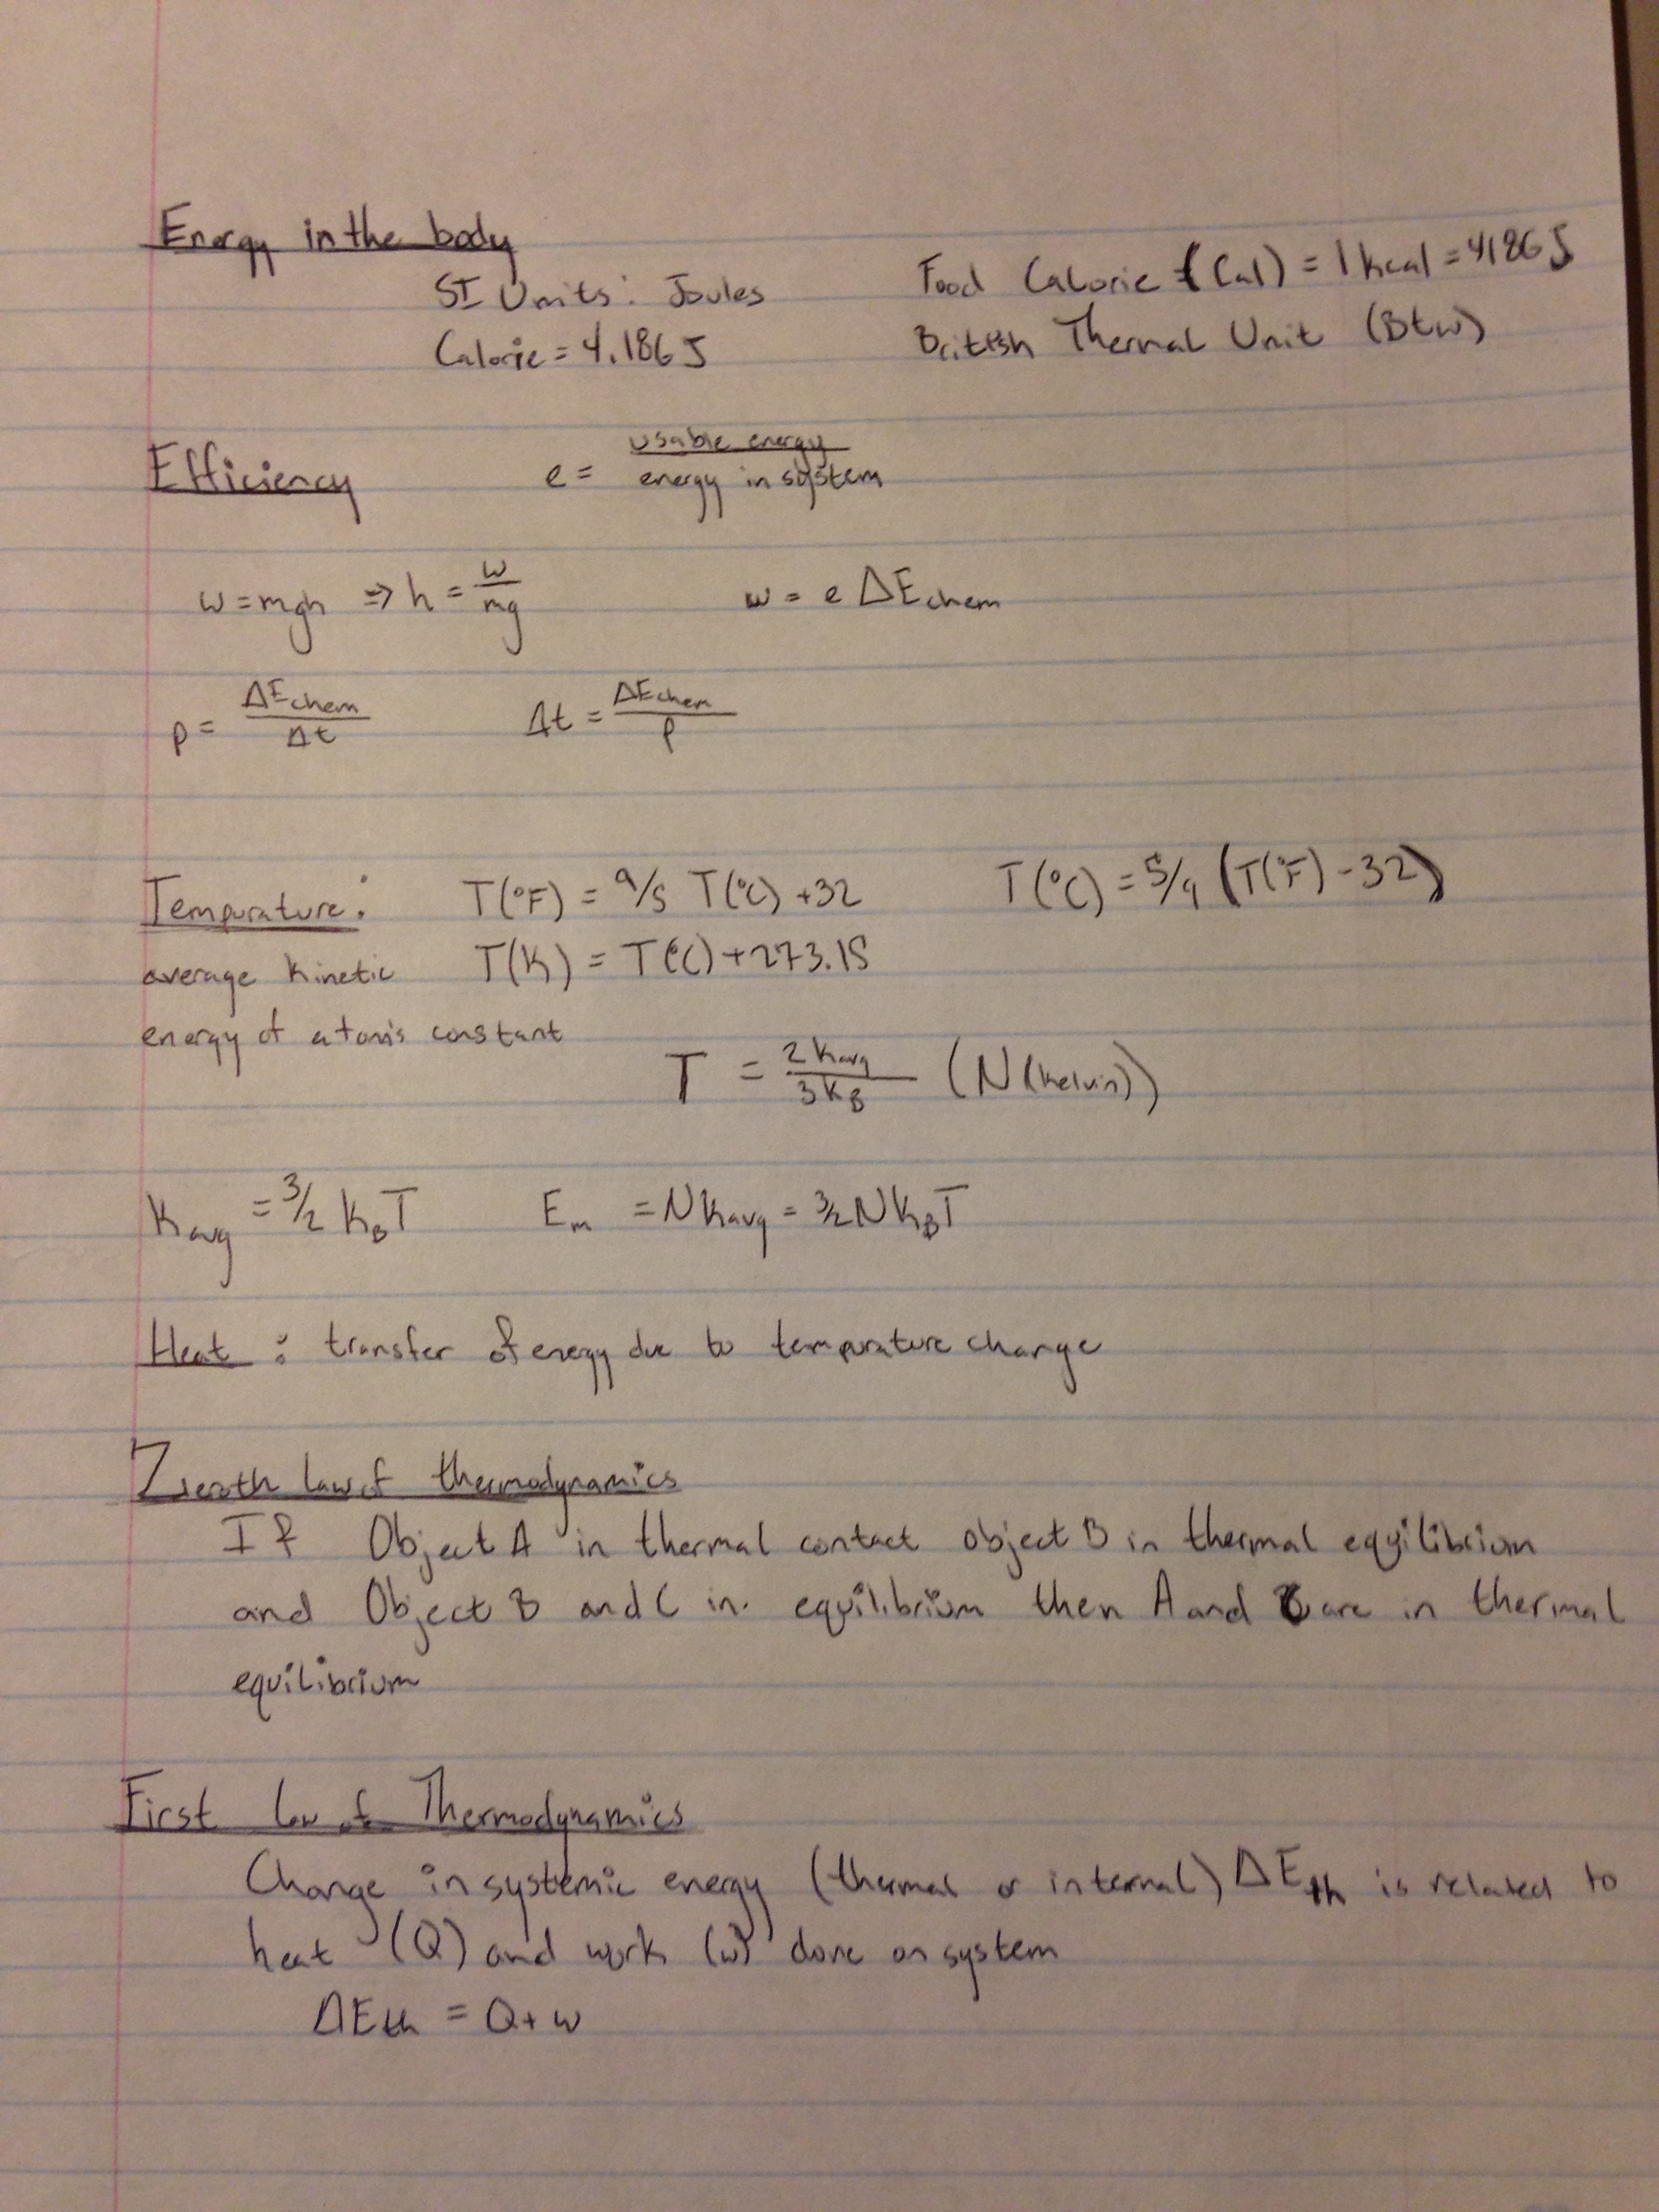 Energy in the body
SI Units: Joules
Food Calorie (Cal) = 1 kcal = 4186 J
Calorie = 4.186 J
British Thermal Unit (Btu)
Efficiency
e = usable energy / energy in system
w = mgh ⇒ h = w/mg
w = e ΔEchem
P = ΔEchem / Δt
Δt = ΔEchem / P
Tempurature:
T(°F) = 9/5 T(°C) + 32
T(°C) = 5/9 (T(°F) - 32)
average kinetic
T(K) = T(°C) + 273.15
energy of atoms constant
T = 2 Kavg / 3 KB (N (kelvin))
Kavg = 3/2 KBT
Em = N Kavg = 3/2 N KBT
Heat : transfer of energy due to tempurature change
Zeroth law of thermodynamics
If Object A in thermal contact object B in thermal equilibrium
and Object B and C in equilibrium then A and C are in thermal
equilibrium
First law of Thermodynamics
Change in systemic energy (thermal or internal) ΔEth is related to
heat (Q) and work (w) done on system
ΔEth = Q + w